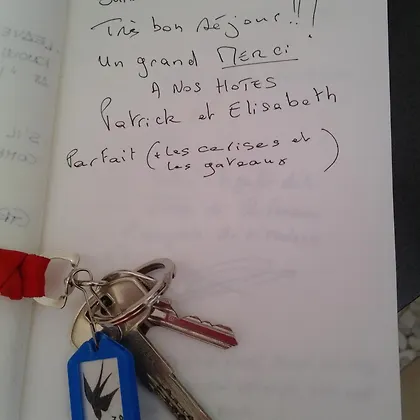 Très bon séjour!!!
Un grand MERCI
A NOS HOTES
Patrick et Elisabeth
Parfait (+ les cerises et
les gateaux)